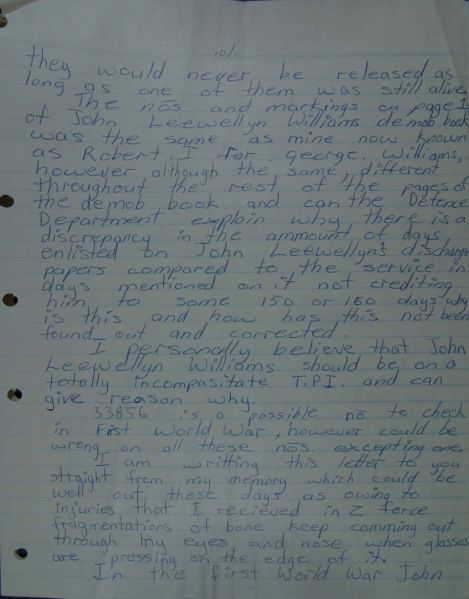 10/
they would never be released as
long as one of them was still alive.
The nōs. and markings on page 1
of John Leewellyn Williams demob book
was the same as mine now known
as Robert I for George Williams,
however although the same, different
throughout the rest of the pages of
the demob book and can the Defence
Department explain why there is a
discrepancy in the ammount of days
enlisted on John Leewellyn's discharge
papers compared to the service in
days mentioned on it not crediting
him to some 150 or 160 days why
is this and how has this not been
found out and corrected.
I personally believe that John
Leewellyn Williams should be on a
totally incompasitate T.P.I. and can
give reason why.
33856 is a possible nō to check
in First World War, however could be
wrong on all these nōs. excepting one.
I am writting this letter to you
straight from my memory which could be
well out these days as owing to
injuries that I recieved in Z force
fragmentations of bone keep comming out
through my eyes and nose when glasses
are pressing on the edge of it.
In the first World War John